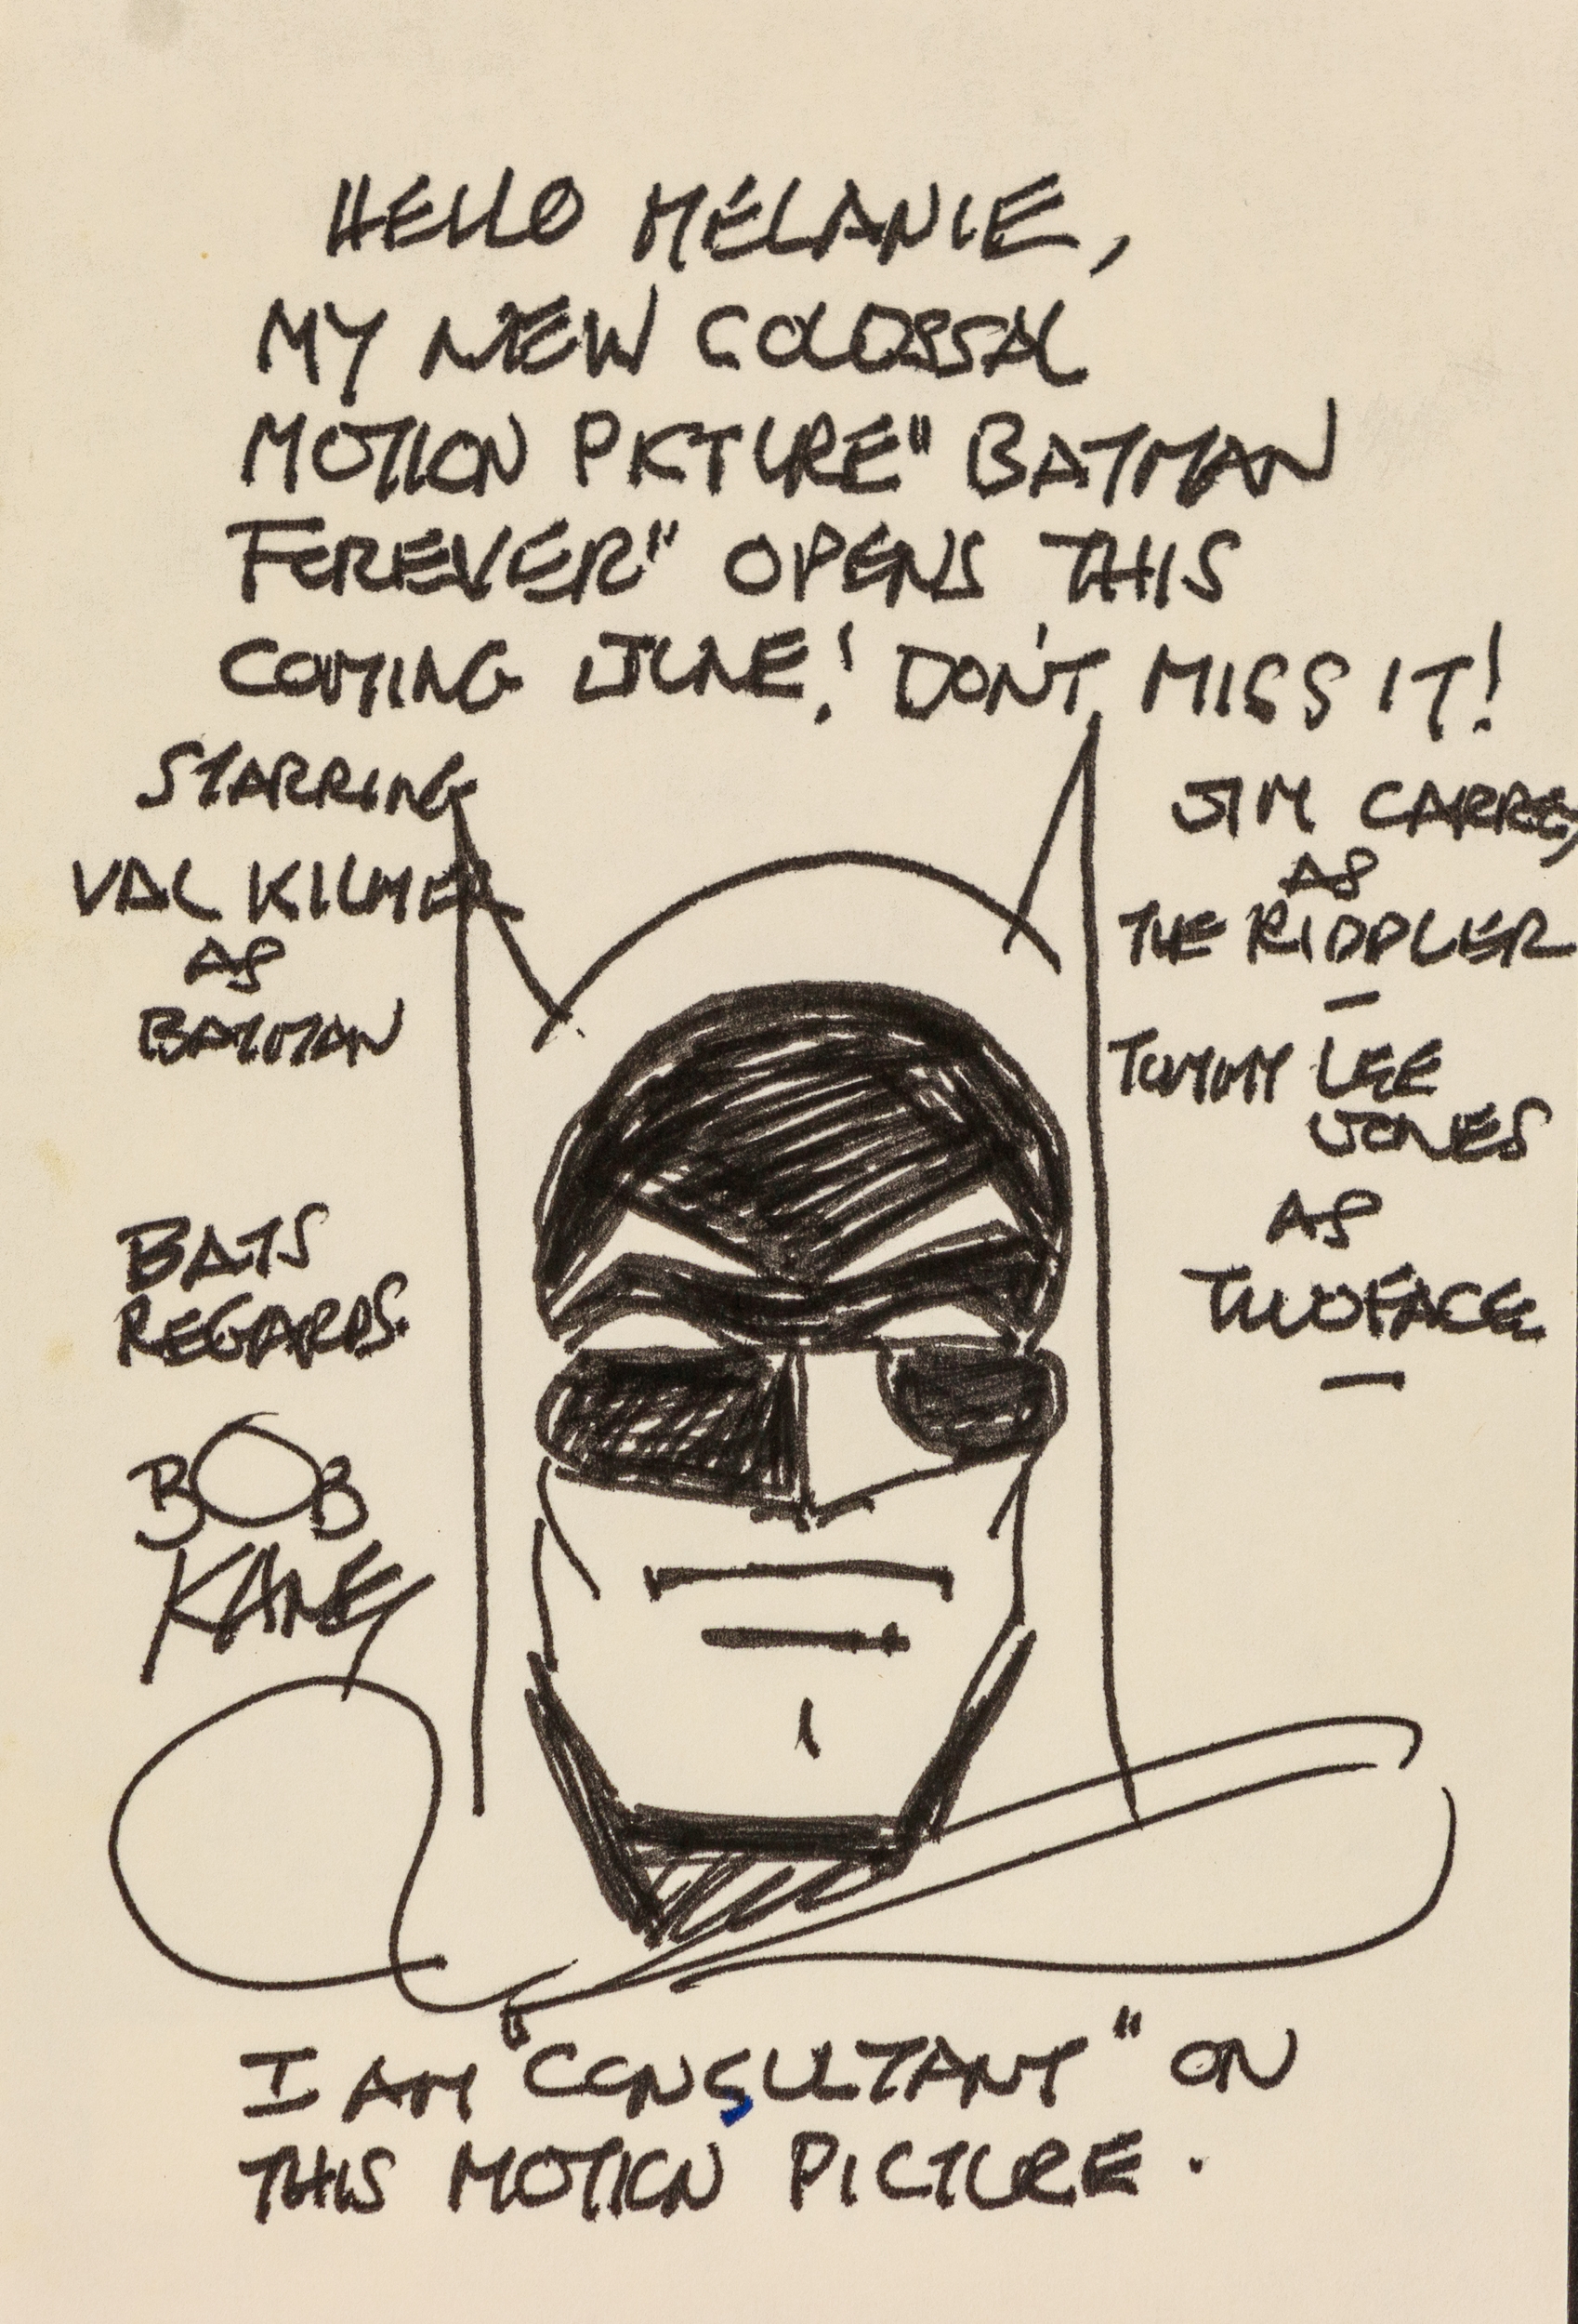 HELLO MELANIE,
MY NEW COLOSSAL
MOTION PICTURE "BATMAN
FOREVER" OPENS THIS
COMING JUNE! DON'T MISS IT!
STARRING
VAL KILMER
AS
BATMAN
JIM CARREY
AS
THE RIDDLER
—
TOMMY LEE
JONES
AS
TWOFACE
—
BATS
REGARDS.
BOB
KANE
I AM "CONSULTANT" ON
THIS MOTION PICTURE.